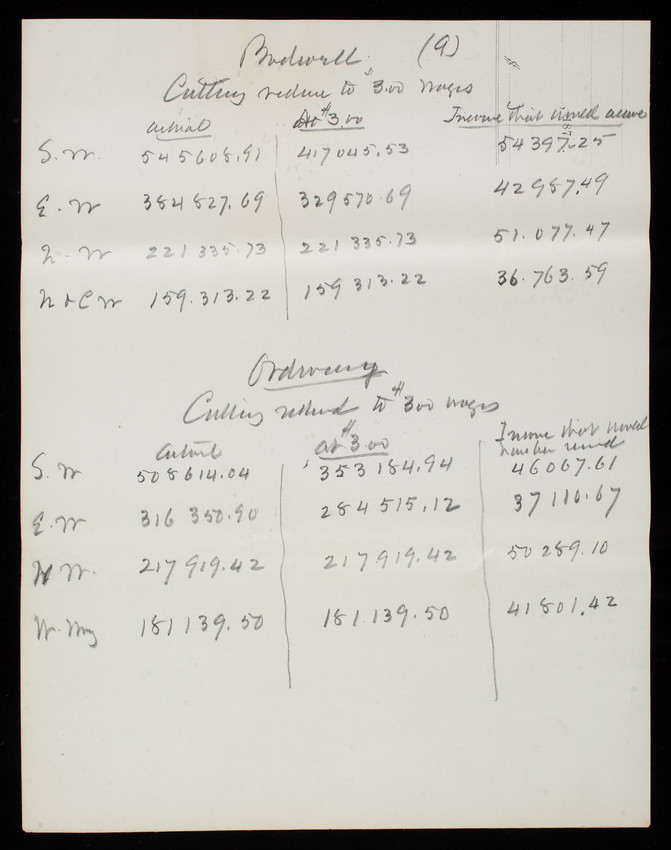 Bodwell (9)
Cutting reduced to $3.00 wages
actual At $3.00 Income that would accrue
S. W. 545608.91 417045.53 54397.25
E. W 384827.69 329570.69 42987.49
N. W 221335.73 221335.73 51.077.47
N & C W 159.313.22 159313.22 36.763.59
Ordway
Cutting reduced to $3.00 wages
Actual at $3.00 Income that would
have been
S. W 508614.04 353184.94 46067.61
E. W 316350.90 284515.12 37110.67
N W. 217919.42 217919.42 50289.10
W. Wing 181139.50 181139.50 41801.42